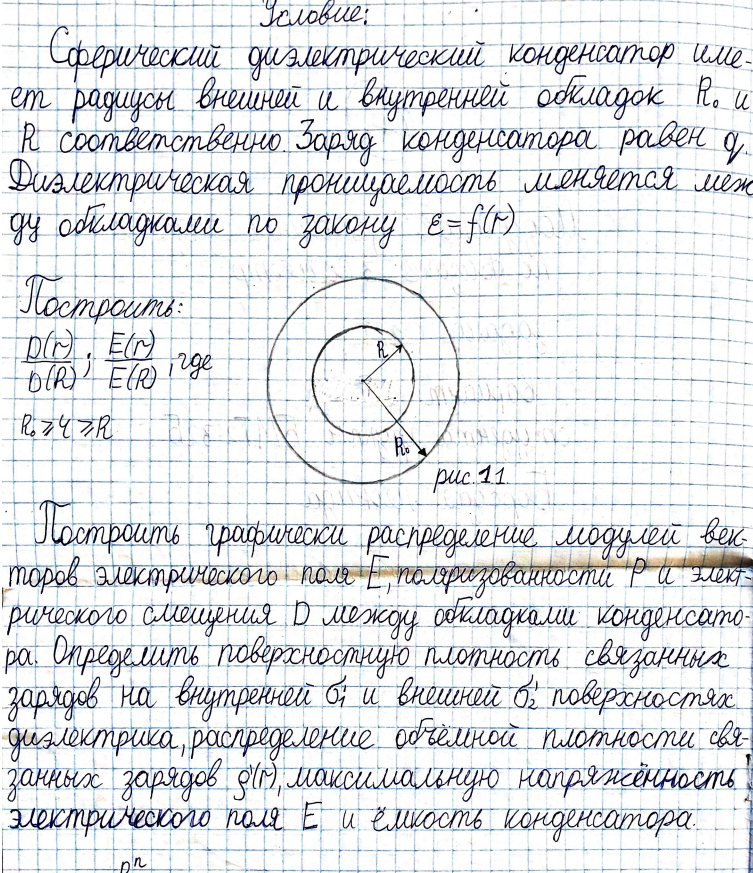 Условие:
Сферический диэлектрический конденсатор име-
ет радиусы внешней и внутренней обкладок R₀ и
R соответственно. Заряд конденсатора равен q.
Диэлектрическая проницаемость меняется меж
ду обкладками по закону ε=f(r)
Построить:
D(r)/D(R); E(r)/E(R), где
R₀≥r≥R
R
R₀
рис. 1.1.
Построить графически распределение модулей век-
торов электрического поля E, поляризованности P и элект-
рического смещения D между обкладками конденсато-
ра. Определить поверхностную плотность связанных
зарядов на внутренней σ₁' и внешней σ₂' поверхностях
диэлектрика, распределение объёмной плотности свя-
занных зарядов ρ'(r), максимальную напряжённость
электрического поля E и ёмкость конденсатора.
Rⁿ